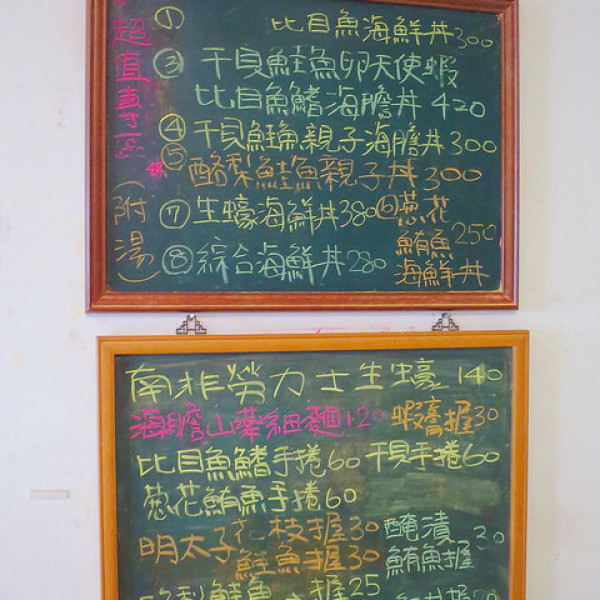 超值專區（附湯）
比目魚海鮮丼300
③ 干貝鮭魚卵天使蝦
比目魚鰭海膽丼 420
④ 干貝鮭魚親子海膽丼 300
⑤ 酪梨鮭魚親子丼 300
⑦ 生蠔海鮮丼 380
⑥ 蔥花
鮪魚 250
海鮮丼
⑧ 綜合海鮮丼 280
南非勞力士生蠔 140
海膽山藥細麵 120
蝦膏握30
比目魚鰭手捲60
干貝手捲60
蔥花鮪魚手捲60
明太子花枝握30
鮭魚握30
醃漬
鮪魚握 30
酪梨鮭魚握25